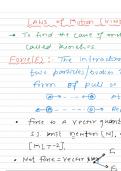 LAWS OF MOTION (KIN
→ To find the cause of mot
called kinetics.
Force (F): The interaction
two particles/bodies
form of pull or
• Force is a vector quant
S.I. unit newton (N),
[MLT-2]
• Net force = vector
F1
F2